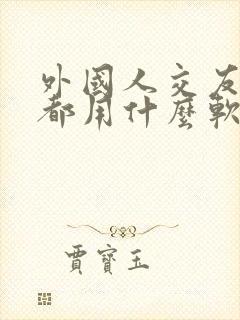 外國人交友
都用什麼軟
賈寶玉